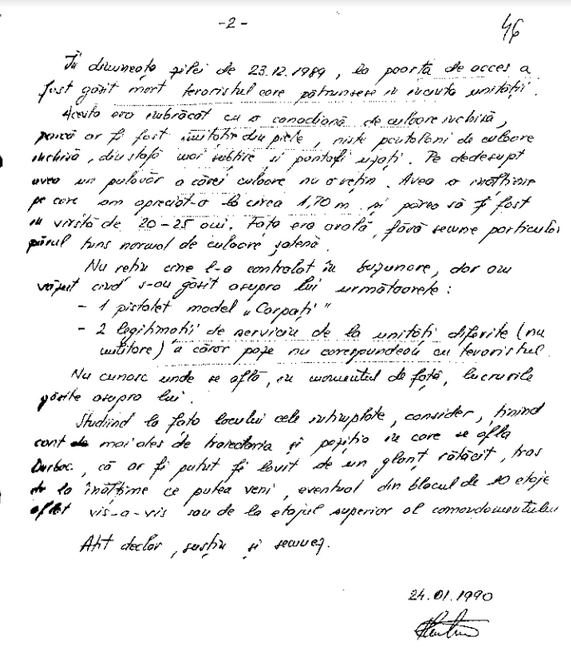 -2-
46
În dimineața zilei de 23.12.1989, la poarta de acces a
fost găsit mort teroristul care pătrunsese în incinta unității.
Acesta era îmbrăcat cu o canadiană de culoare închisă,
parcă ar fi fost imitație din piele, niște pantaloni de culoare
închisă, din stofă mai subțire și pantofi uzați. Pe dedesupt
avea un pulovăr a cărei culoare nu o rețin. Avea o înălțime
pe care am apreciat-o la circa 1,70 m și părea să fi fost
în vîrstă de 20-25 ani. Fața era ovală, fără semne particular
părul tuns normal de culoare șatenă.
Nu rețin cine l-a controlat în buzunare, dar am
văzut cînd s-au găsit asupra lui următoarele:
- 1 pistolet model „Carpați"
- 2 legitimații de serviciu de la unități diferite (nu
militare) a căror poze nu corespundeau cu teroristul.
Nu cunosc unde se află, în momentul de față, lucrurile
găsite asupra lui.
Studiind la fața locului cele întîmplate, consider, ținînd
cont de mai ales de traiectoria și poziția în care se afla
, că ar fi putut fi lovit de un glonț rătăcit, tras
de la înălțime ce putea veni, eventual din blocul de 10 etaje
aflat vis-a-vis sau de la etajul superior al comandamentului
Atît declar, susțin și semnez.
24.01.1990